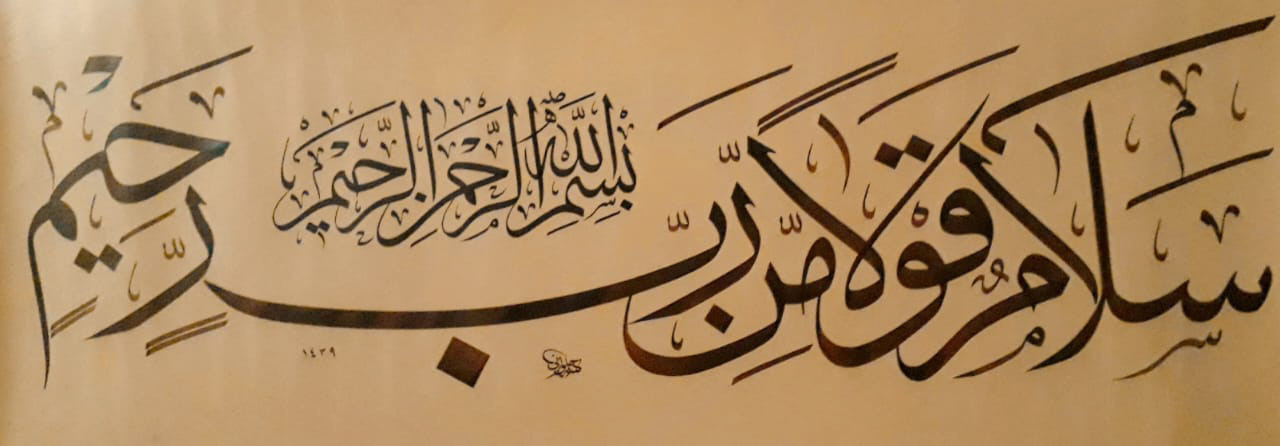 بِسْمِ اللّٰهِ الرَّحْمٰنِ الرَّحِيْمِ
سَلَامٌ قَوْلًا مِّنْ رَّبٍّ رَّحِيْمٍ
١٤٣٩